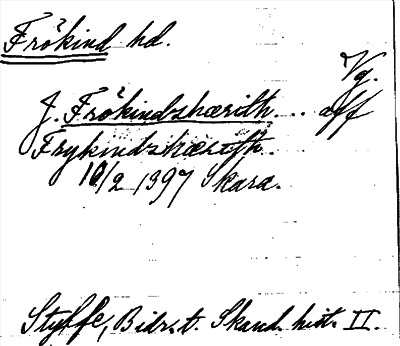 Frökind hd.
Vg.
J. Frökindzhærith ... aff
Frykindzhæreth..
10/2 1397 Skara.
Styffe, Bidr. t. Skand. hist. II.